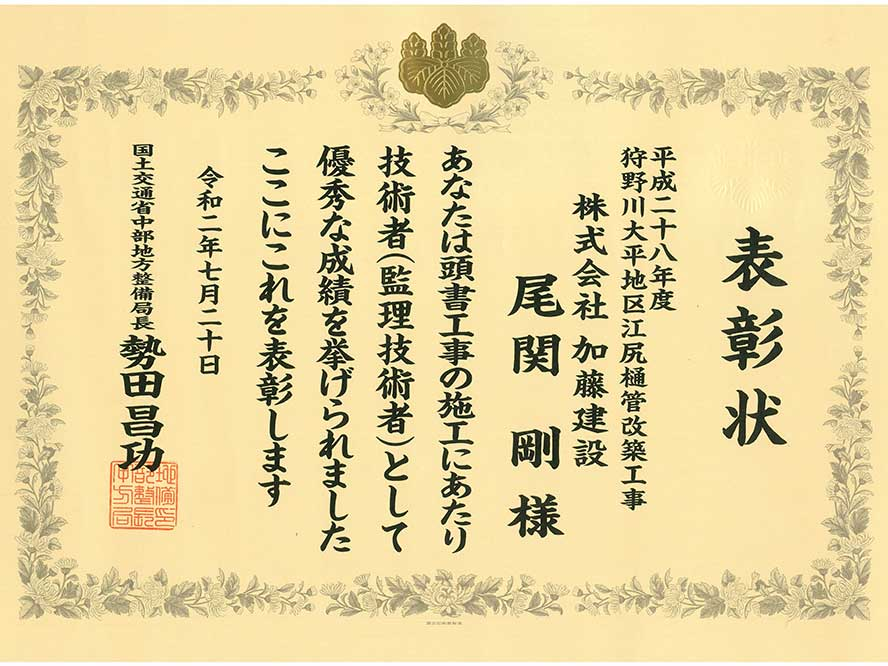 表彰状
平成二十八年度
狩野川大平地区江尻樋管改築工事
株式会社 加藤建設
尾関 剛様
あなたは頭書工事の施工にあたり
技術者(監理技術者)として
優秀な成績を挙げられました
ここにこれを表彰します
令和二年七月二十日
国土交通省中部地方整備局長 勢田昌功